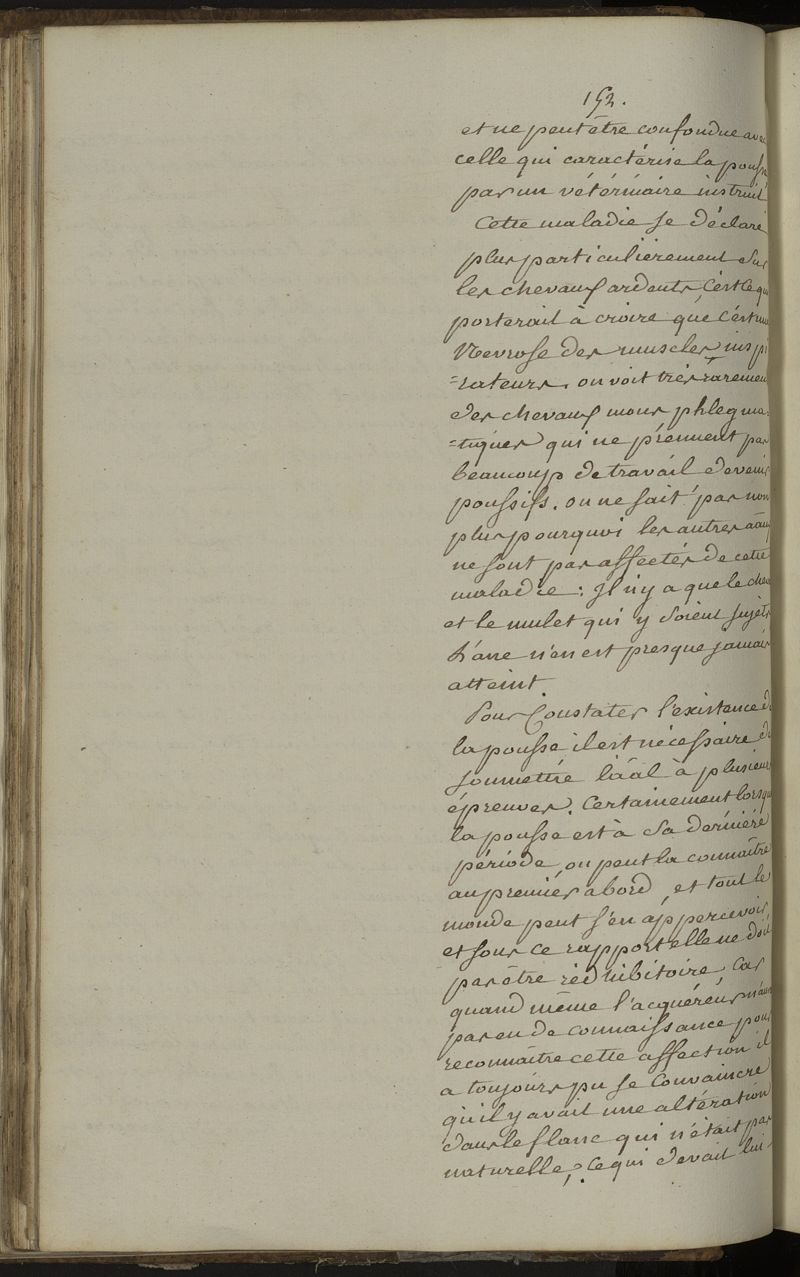 152.
et ne peut être confondue avec
celle qui caractérise la pousse
par un vétérinaire instruit
Cette maladie se déclare
plus particulièrement sur
les chevaux ardents, c'est ce qui
porterait à croire que c'est une
Névrose des muscles inspi
=rateurs. on voit très rarement
des chevaux mous phlegma-
=tiques qui ne prennent pas
beaucoup de travail devenir
poussifs. on ne sait pas non
plus pourquoi les autres aãux
ne sont pas affectés de cette
maladie : Il n'y a que le cheval
et le mulet qui y soient sujets
L'ane n'en est presque jamais
atteint.
Pour Constater l'existence de
la pousse il est nécessaire de
soumettre l'aãl à plusieurs
épreuves. Certainement lorsque
la pousse est à sa dernière
période, on peut la connaître
au premier abord, et tout le
monde peut s'en appercevoir,
et sous ce rapport elle ne doit
pas être rédhibitoire, Car
quand même l'acquéreur n'aurait
pas eu de connaissance pour
reconnaître cette affection il
a toujours pu se Convaincre
qu'il y avait une altération
dans le flanc qui n'était pas
naturelle, Ce qui devait lui